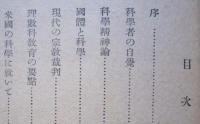 目次
序
科學者の自覺
科學精神論
國體と科學
現代の宗教裁判
理數科教育の要點
米國の科學に就いて